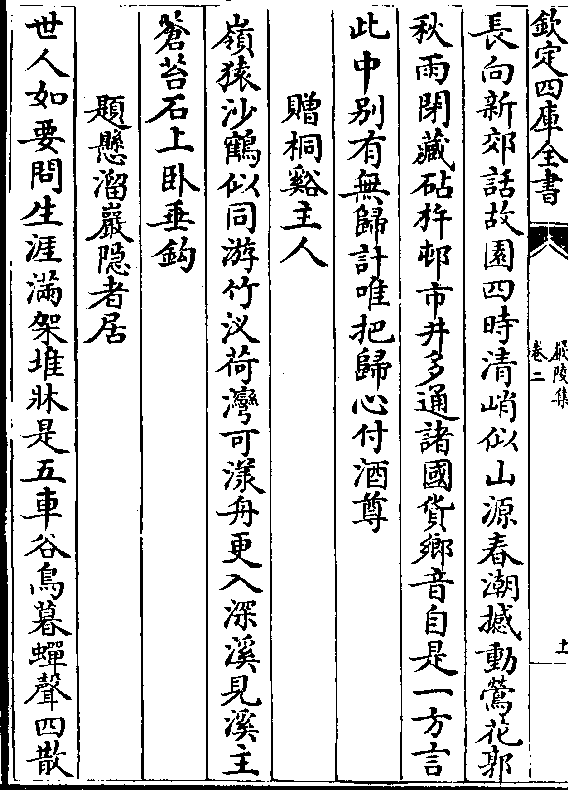 欽定四庫全書
嚴陵集
卷二
十
長向新郊話故園四時清峭似山源春潮撼動鶯花郭
秋雨閉藏砧杵邨市井多通諸國貨鄉音自是一方言
此中别有無歸計唯把歸心付酒尊
贈桐谿主人
嶺猿沙鶴似同游竹汊荷灣可漾舟更入深溪見溪主
蒼苔石上卧垂鈎
題懸溜巖隠者居
世人如要問生涯滿架堆牀是五車谷鳥暮蟬聲四散